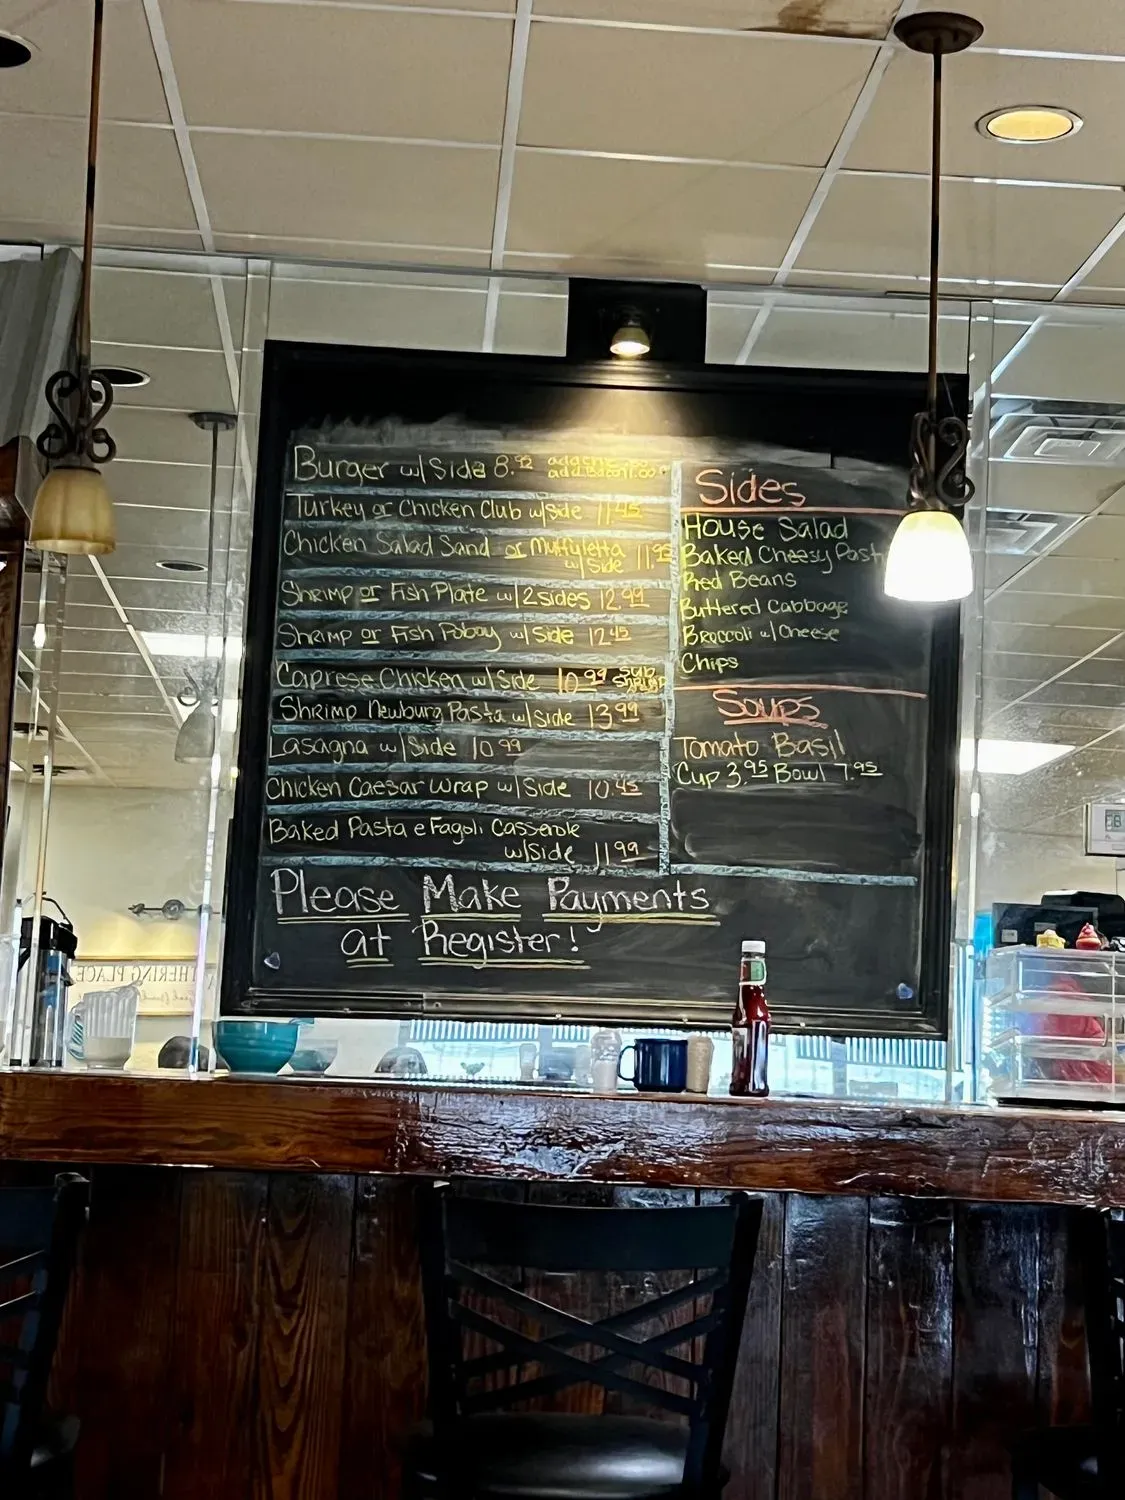 Burger w/Side 8.95 add
add Bacon 1.00
Turkey or Chicken Club w/side 11.45
Chicken Salad Sand or Muffuletta
w/Side 11.95
Shrimp or Fish Plate w/2sides 12.99
Shrimp or Fish Poboy w/Side 12.45
Caprese Chicken w/Side 10.99 Sub
Shrimp Newburg Pasta w/Side 13.99
Lasagna w/Side 10.99
Chicken Caesar Wrap w/Side 10.45
Baked Pasta e Fagoli Casserole
w/Side 11.99
Sides
House Salad
Baked Cheesy Past
Red Beans
Buttered Cabbage
Broccoli w/Cheese
Chips
Soups
Tomato Basil
Cup 3.95 Bowl 7.95
Please Make Payments
at Register!
THERING PLACE